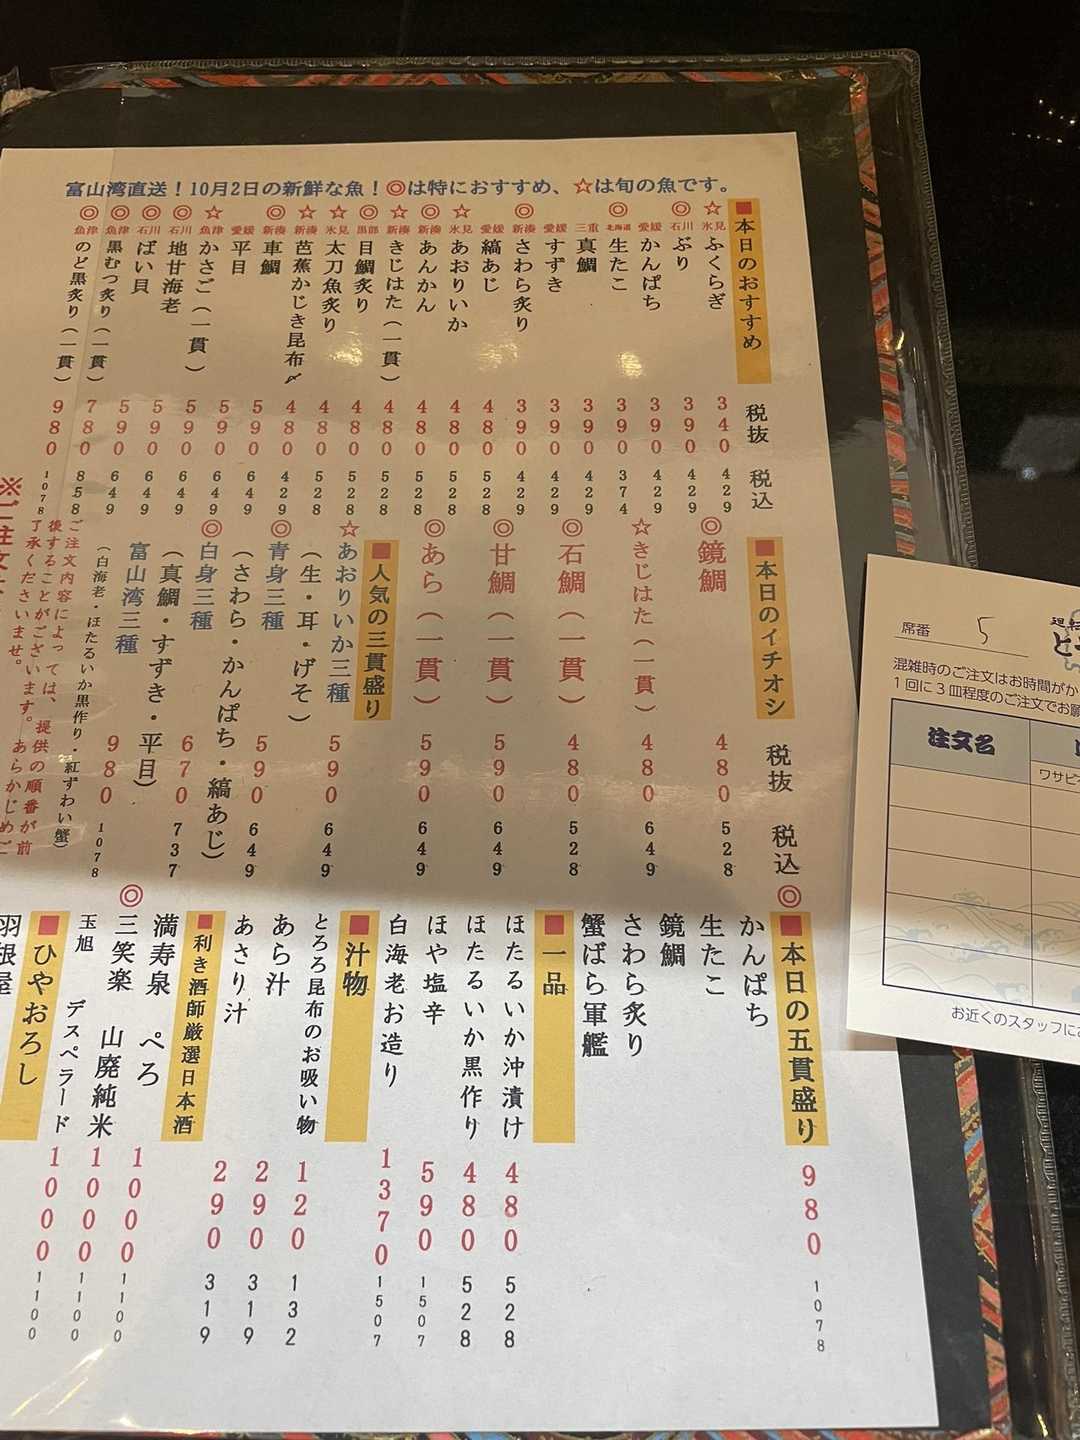 富山湾直送！10月2日の新鮮な魚！◎は特におすすめ、☆は旬の魚です。
■本日のおすすめ 税抜 税込
☆氷見 ふくらぎ 340 429
◎石川 ぶり 390 429
愛媛 かんぱち 390 429
◎北海道 生たこ 390 374
三重 真鯛 390 429
愛媛 すずき 390 429
◎新湊 さわら炙り 390 429
愛媛 縞あじ 480 528
☆氷見 あおりいか 480 528
◎新湊 あんかん 480 528
☆新湊 きじはた（一貫） 480 528
◎黒部 目鯛炙り 480 528
☆氷見 太刀魚炙り 480 528
☆新湊 芭蕉かじき昆布〆 480 429
◎新湊 車鯛 590 649
愛媛 平目 590 649
☆魚津 かさご（一貫） 590 649
◎石川 地甘海老 590 649
◎石川 ばい貝 590 649
◎魚津 黒むつ炙り（一貫） 780 858
◎魚津 のど黒炙り（一貫） 980 1078
■本日のイチオシ 税抜 税込
◎鏡鯛 480 528
☆きじはた（一貫） 480 649
◎石鯛（一貫） 480 528
◎甘鯛（一貫） 590 649
◎あら（一貫） 590 649
■人気の三貫盛り
☆あおりいか三種 590 649
（生・耳・げそ）
◎青身三種 590 649
（さわら・かんぱち・縞あじ）
◎白身三種 670 737
（真鯛・すずき・平目）
富山湾三種 980 1078
（白海老・ほたるいか黒作り・紅ずわい蟹）
ご注文内容によっては、提供の順番が前
後することがございます。あらかじめご
了承くださいませ。
※ご注文
◎■本日の五貫盛り 980 1078
かんぱち
生たこ
鏡鯛
さわら炙り
蟹ばら軍艦
■一品
ほたるいか沖漬け 480 528
ほたるいか黒作り 480 528
ほや塩辛 590 1507
白海老お造り 1370 1507
■汁物
とろろ昆布のお吸い物 120 132
あら汁 290 319
あさり汁 290 319
■利き酒師厳選日本酒
満寿泉 ぺろ 1000 1100
◎三笑楽 山廃純米 1000 1100
玉旭 デスペラード 1000 1100
■ひやおろし
羽根屋
席番 5
混雑時のご注文はお時間がか
1回に3皿程度のご注文でお願
注文名
ワサビ
お近くのスタッフに